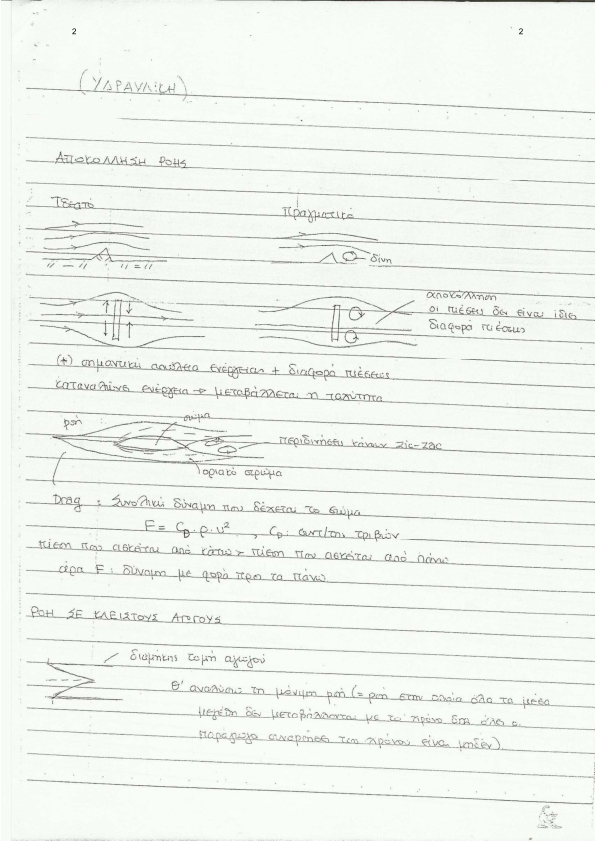 2 2
(ΥΔΡΑΥΛΙΚΗ)
ΑΠΟΚΟΛΛΗΣΗ ΡΟΗΣ
Ιδεατό
Πραγματικά
δίνη
αποκόλληση
οι πιέσεις δεν είναι ίδιες
διαφορά πιέσεως
(+) σημαντική απώλεια ενέργειας + διαφορά πιέσεως
καταναλώνει ενέργεια → μεταβάλλεται η ταχύτητα
ροή
σώμα
περιδινήσεις κάνουν zic-zac
οριακό στρώμα
Drag : Συνολική δύναμη που δέχεται το σώμα
F = C_D · ρ · u² , C_D : συντ/της τριβών
πίεση που ασκείται από κάτω > πίεση που ασκείται από πάνω
άρα F : δύναμη με φορά προς τα πάνω
ΡΟΗ ΣΕ ΚΛΕΙΣΤΟΥΣ ΑΓΩΓΟΥΣ
διαμήκης τομή αγωγού
Θ' αναλύσω τη μόνιμη ροή (= ροή στην οποία όλα τα μέσα
μεγέθη δεν μεταβάλλονται με το χρόνο όλες οι
παράγωγοι συναρτήσει του χρόνου είναι μηδέν).